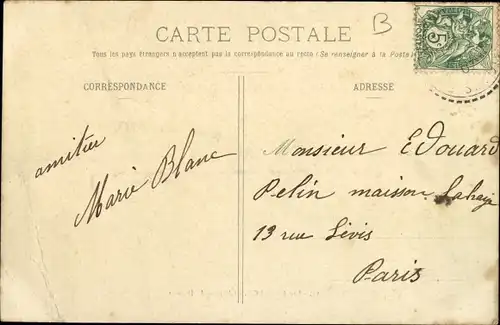 B
CARTE POSTALE
Tous les pays étrangers n'acceptent pas la correspondance au recto (Se renseigner à la Poste)
CORRESPONDANCE
ADRESSE
amitiés
Marie Blanc
Monsieur Edouard
Pelin maison Lahaye
13 rue Lévis
Paris
5c